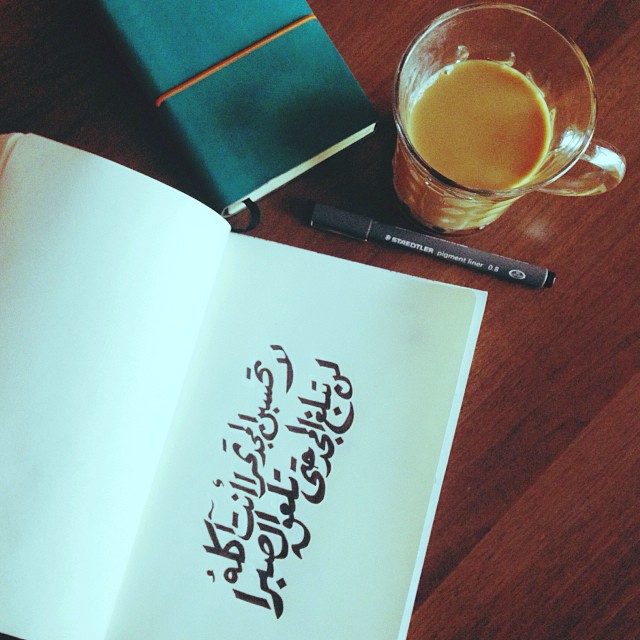 لا تحسبن المجد تمرا أنت آكلهُ
لن تبلغ المجد حتى تلعق الصبرا
STAEDTLER pigment liner 0.8